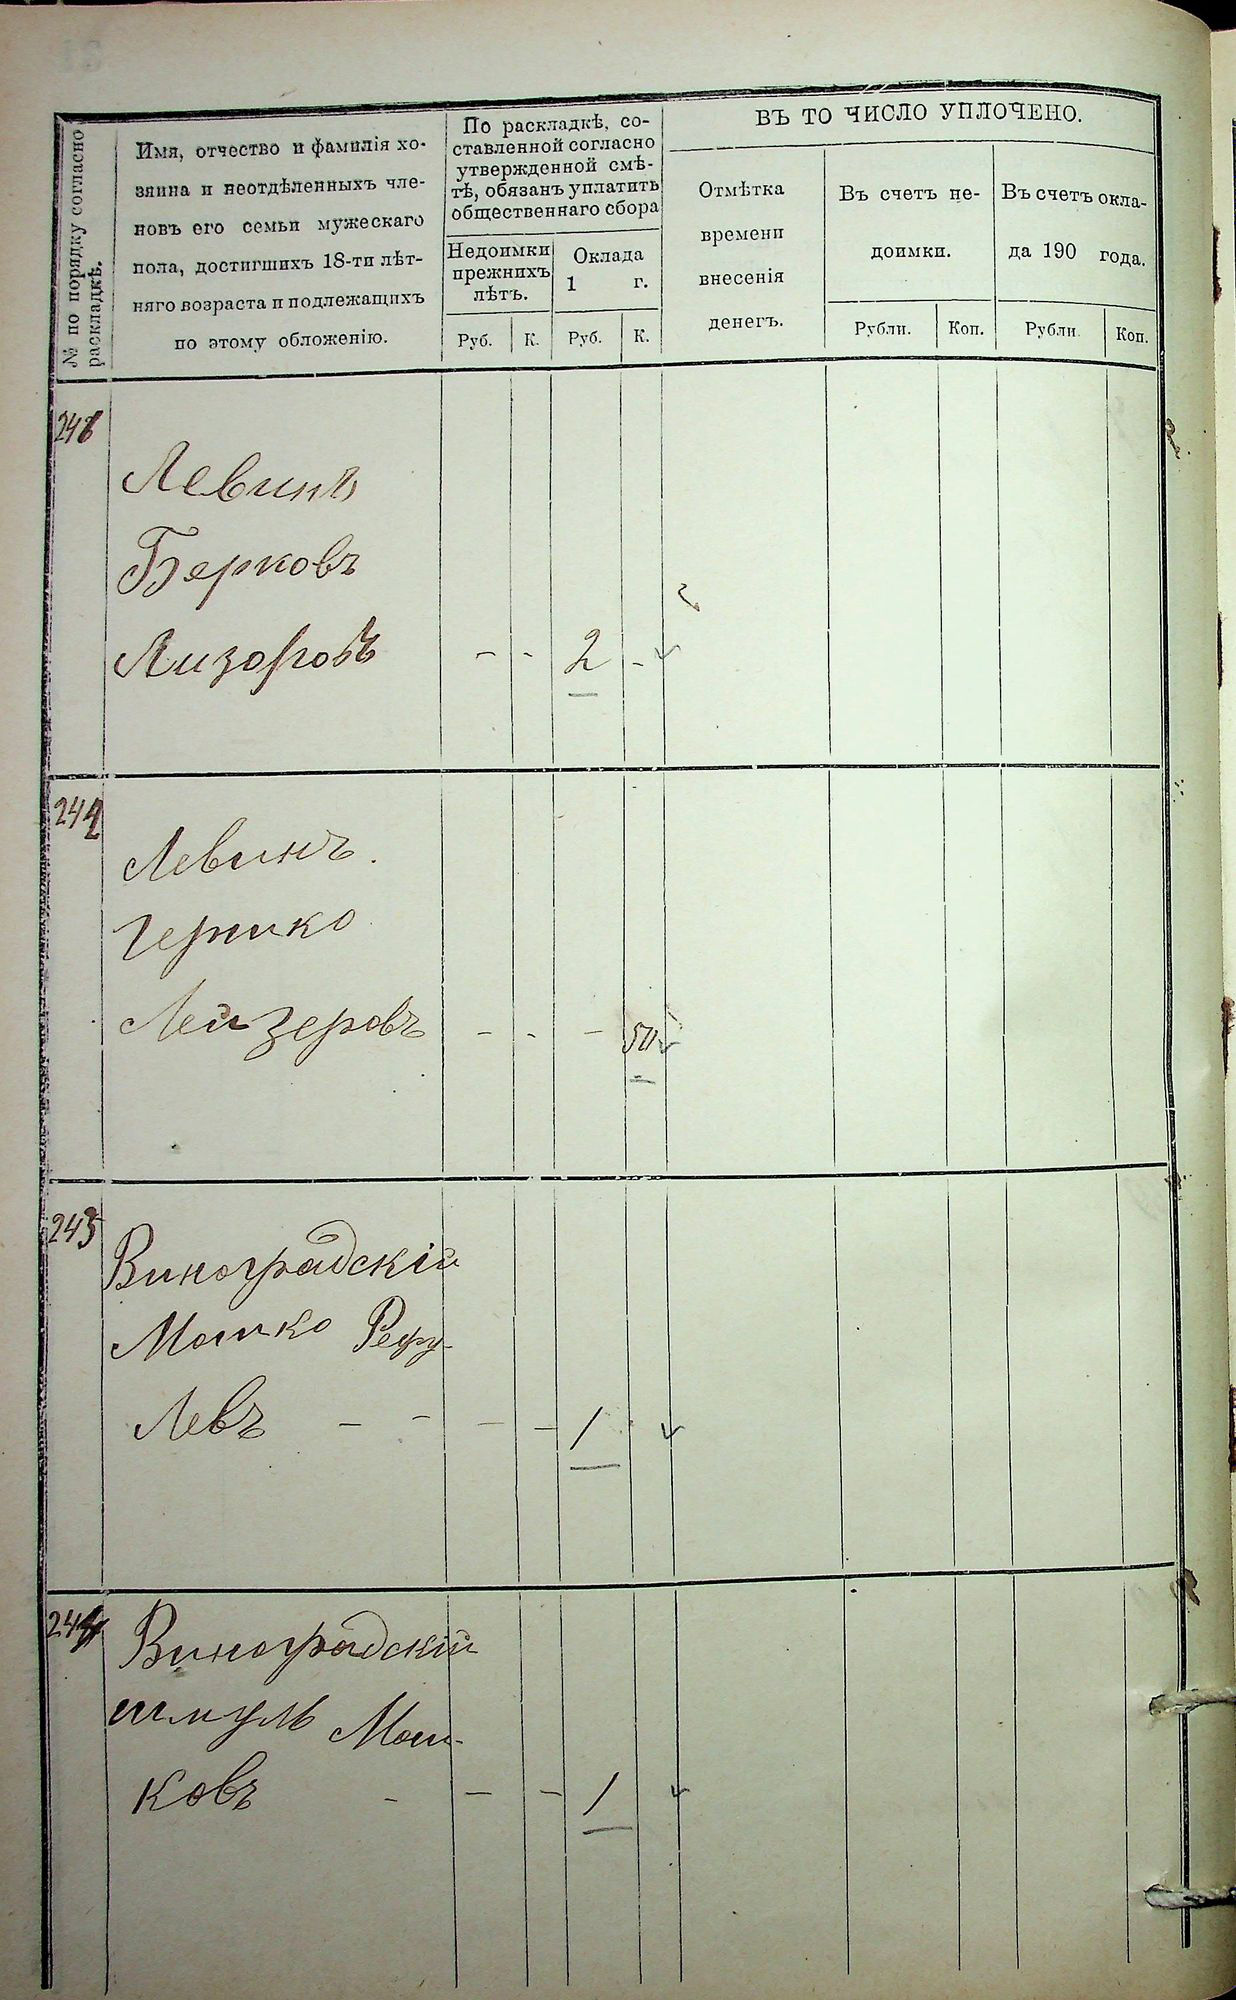 № по порядку согласно
раскладкѣ.
Имя, отчество и фамилія хо-
зяина и неотдѣленныхъ чле-
новъ его семьи мужескаго
пола, достигшихъ 18-ти лѣт-
няго возраста и подлежащихъ
по этому обложенію.
По раскладкѣ, со-
ставленной согласно
утвержденной смѣ-
тѣ, обязанъ уплатить
общественнаго сбора
Недоимки
прежнихъ
лѣтъ.
Оклада
1 г.
Руб. К. Руб. К.
ВЪ ТО ЧИСЛО УПЛОЧЕНО.
Отмѣтка
времени
внесенія
денегъ.
Въ счетъ не-
доимки.
Въ счетъ окла-
да 190 года.
Рубли. Коп. Рубли. Коп.
Левинъ
Берковъ
Лизоровъ - - 2 -
242
Левинъ.
Гершко
Лейзеровъ - - - 50
243
Виноградскій
Мошко Рефу-
Левъ - - - - 1
244
Виноградскій
Шмуль Мош-
ковъ - - - 1